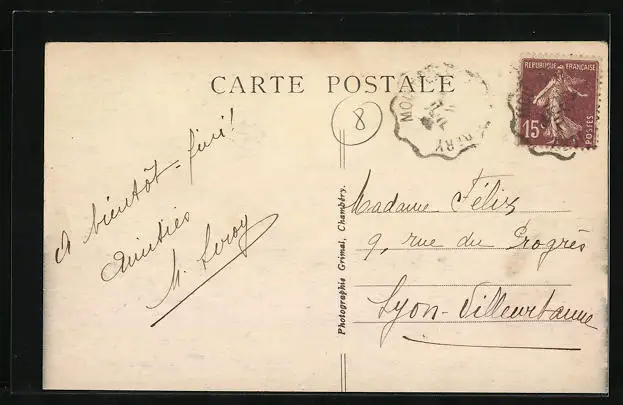 CARTE POSTALE
8
REPUBLIQUE FRANÇAISE
15
POSTES
MOU
ERY
A bientôt - fini!
Amitiés
M. Leroy
Photographie Grimal, Chambéry.
Madame Félix
9, rue du Progrès
Lyon-Villeurbanne